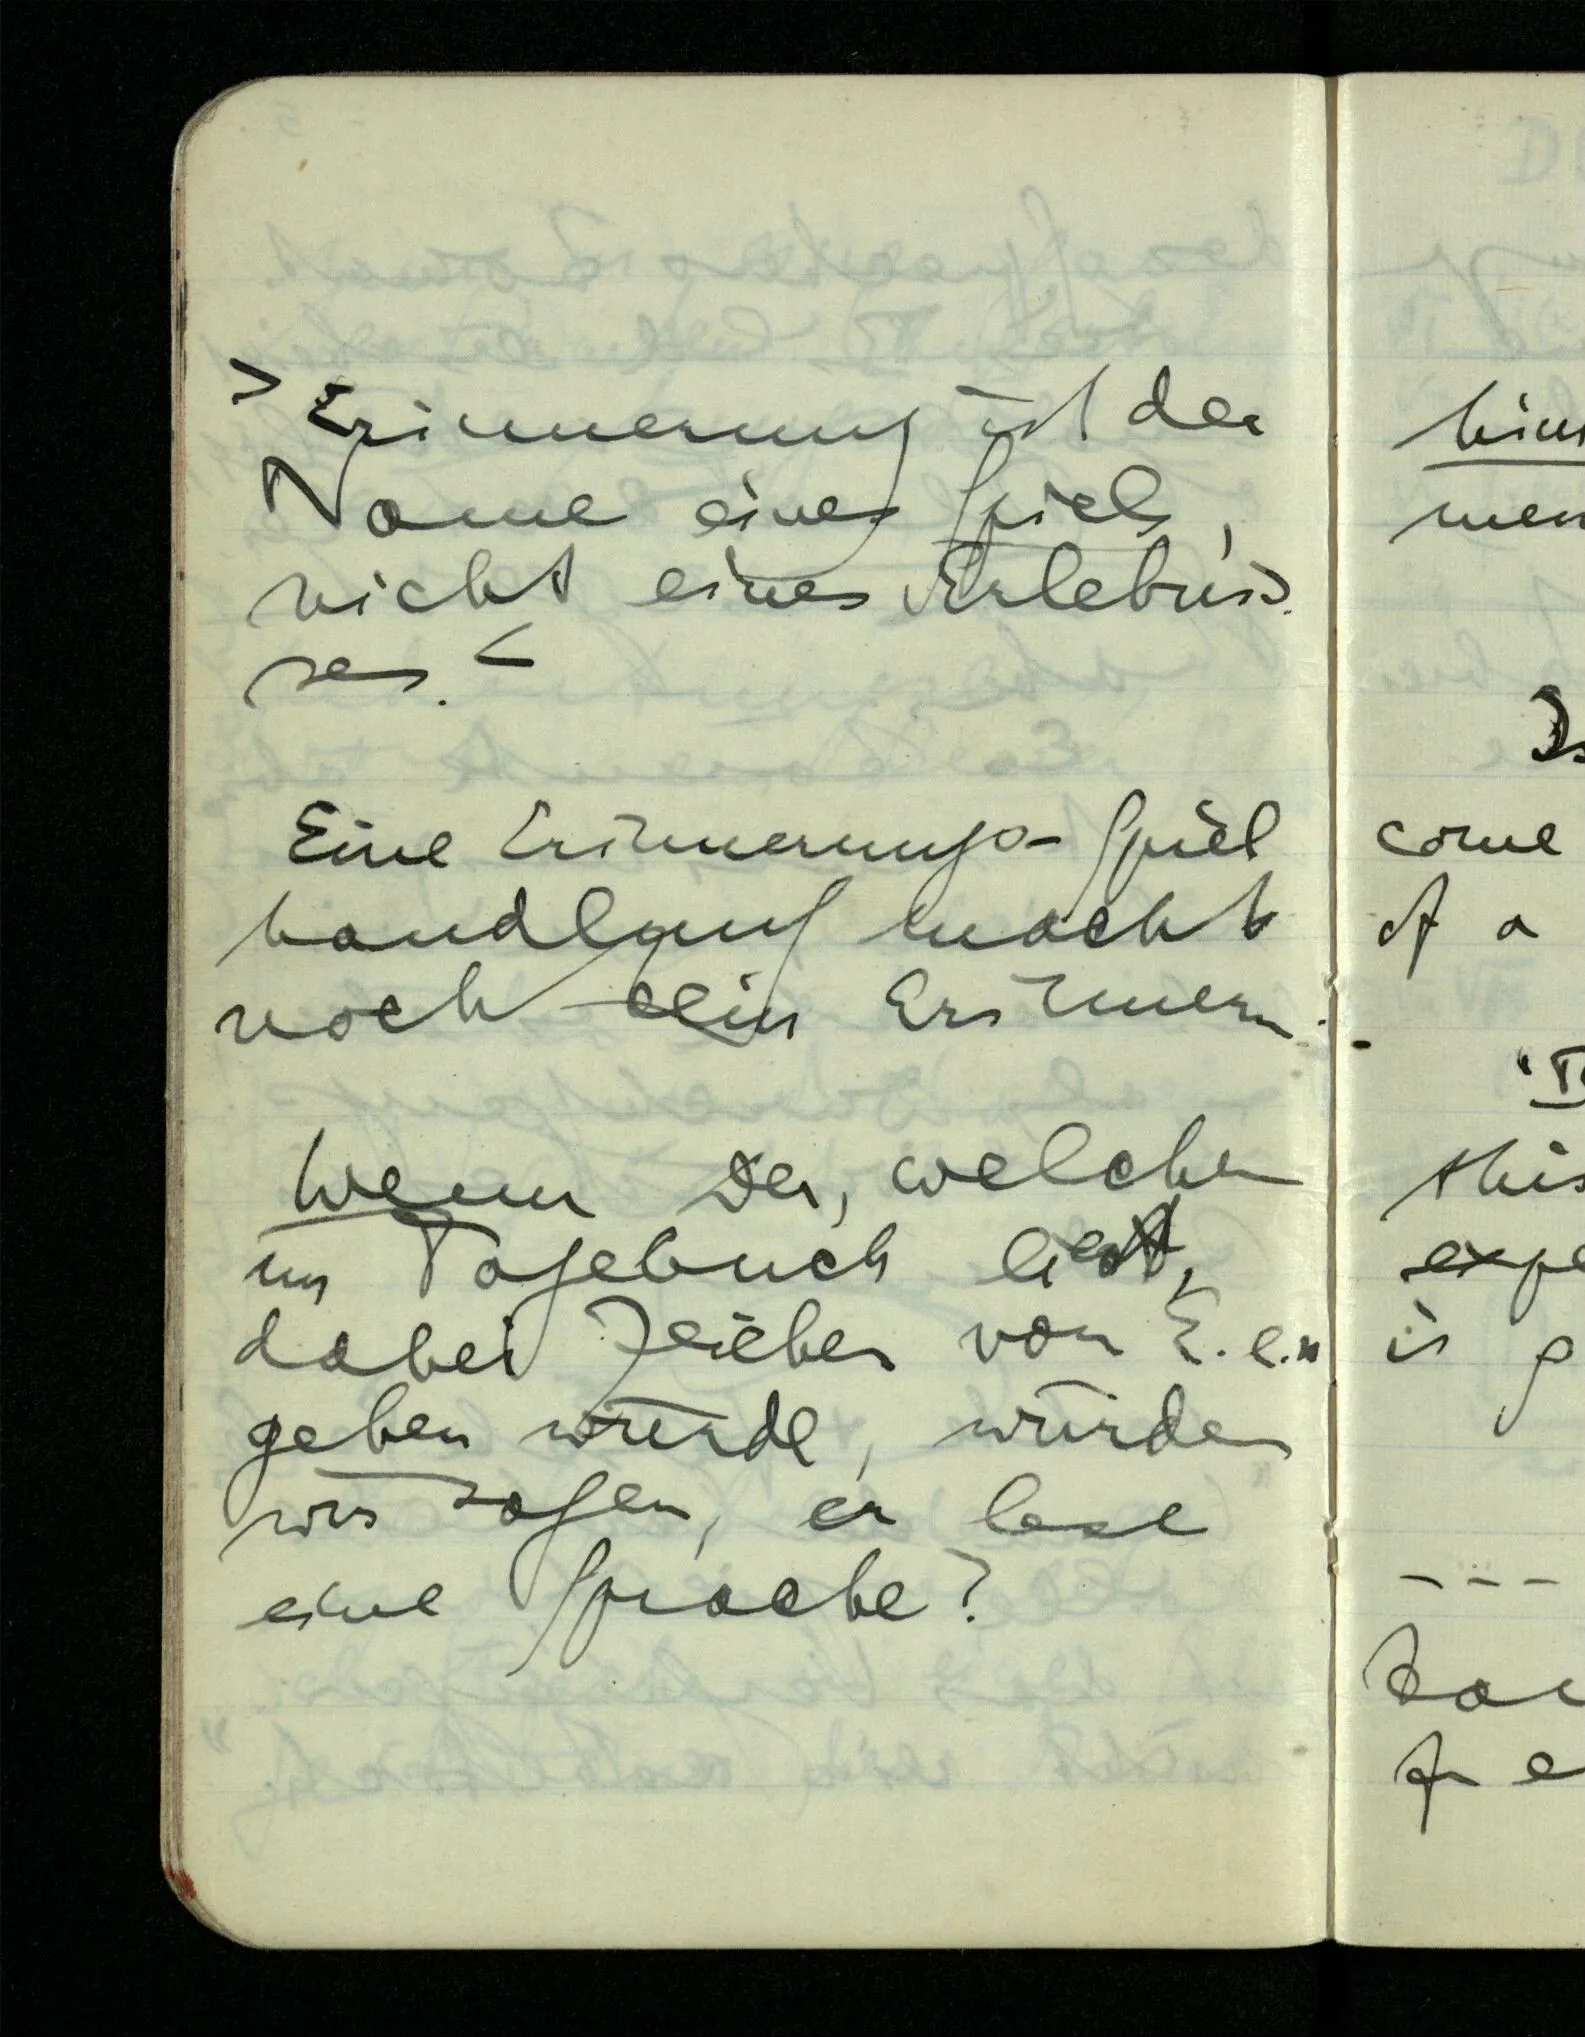 > Erinnerung ist der
Name eines Spiels,
nicht eines Erlebnis-
ses. <
Eine Erinnerungs-Spiel
handlung macht
noch kein Erinnern.
Wenn Der, welcher
im Tagebuch liest,
dabei Zeichen von E.e.n
geben würde, würden
wir sagen, er lese
eine Sprache?
come
of a
this
is